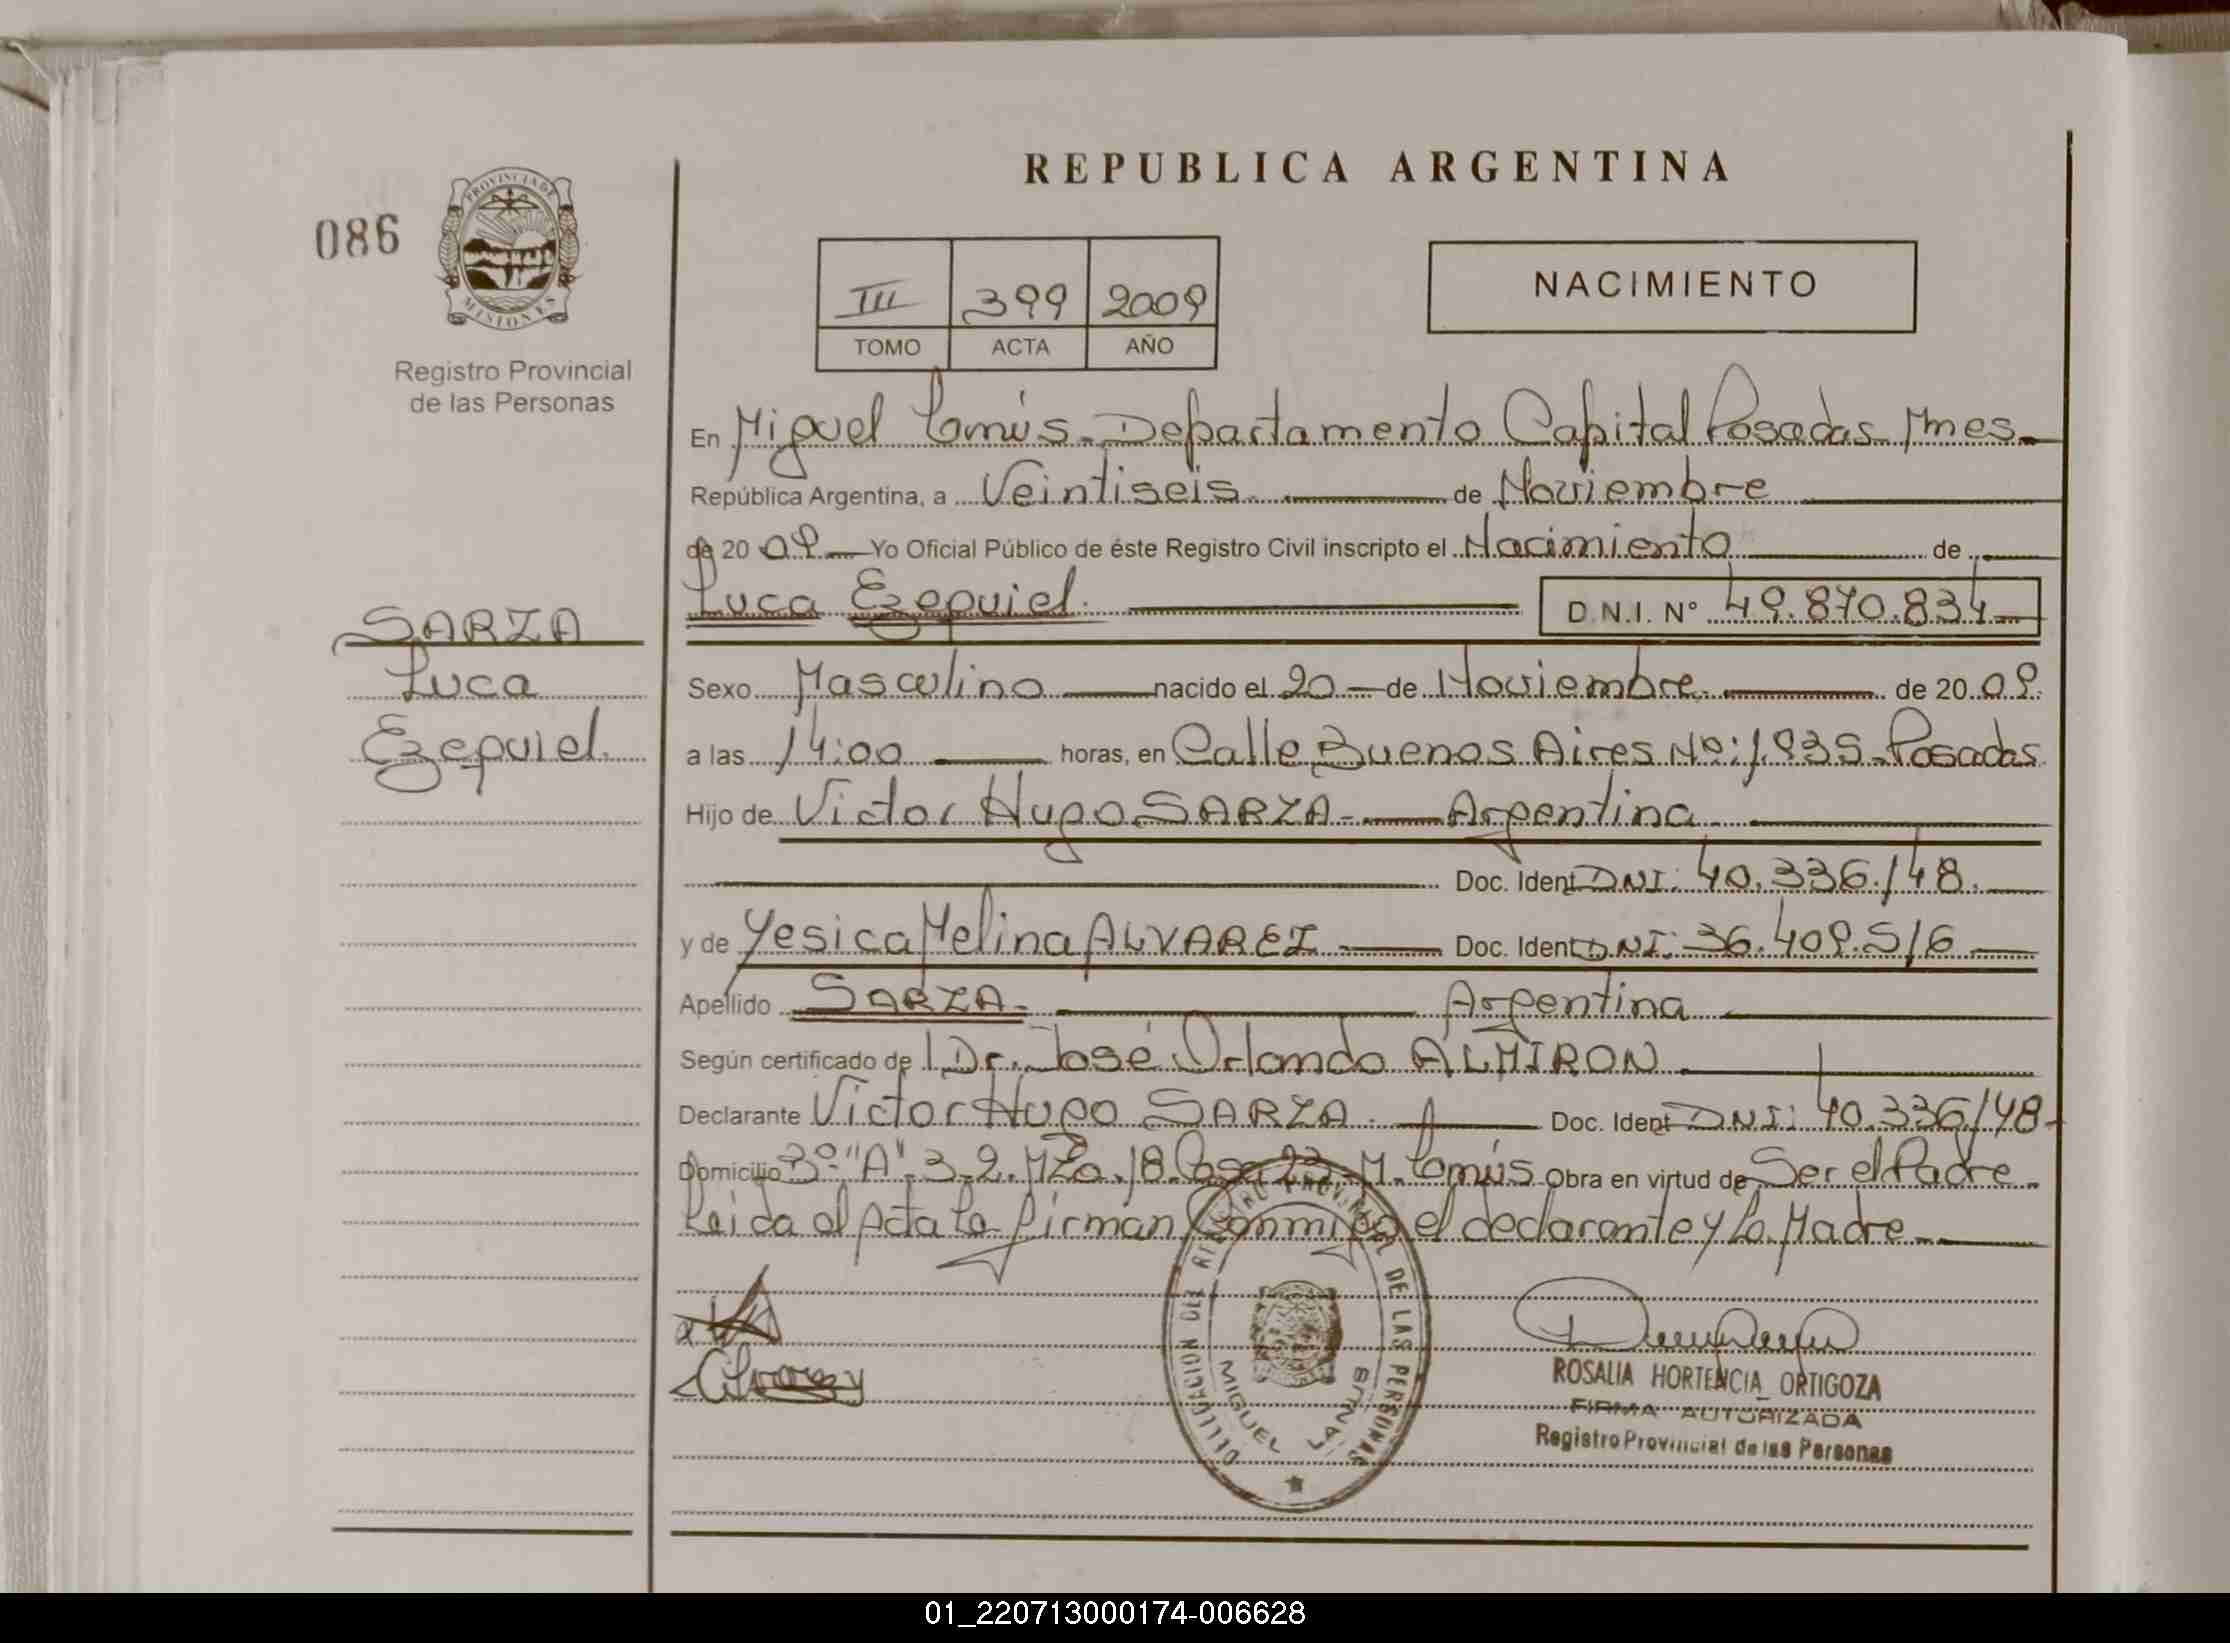 REPUBLICA ARGENTINA
086
PROVINCIA DE
MISIONES
Registro Provincial
de las Personas
III 399 2009
TOMO ACTA AÑO
NACIMIENTO
En Miguel Lanús - Departamento Capital Posadas Mnes.
República Argentina, a Veintiseis de Noviembre
de 20 09 Yo Oficial Público de éste Registro Civil inscripto el Nacimiento de
Luca Ezequiel. D.N.I. Nº 49.870.834
SARZA
Luca
Ezequiel.
Sexo Masculino nacido el 20 de Noviembre de 20 09.
a las 14:00 horas, en Calle Buenos Aires Nº: 1.935 - Posadas
Hijo de Victor Hugo SARZA - Argentina
Doc. Ident DNI: 40.336.148.
y de Yesica Melina ALVAREZ - Doc. Ident DNI: 36.409.516
Apellido SARZA - Argentina
Según certificado de Dr. José Orlando ALMIRON
Declarante Victor Hugo SARZA Doc. Ident DNI: 40.336.148 -
Domicilio 3º "A" 3-2. MZa. 18 Casa 23 - M. Lanús Obra en virtud de Ser el Padre
Leida el Acta la firman Conmigo el declarante y la Madre
DELEGACION DEL REGISTRO PROVINCIAL DE LAS PERSONAS
MIGUEL LANUS
ROSALIA HORTENCIA ORTIGOZA
FIRMA AUTORIZADA
Registro Provincial de las Personas
01_220713000174-006628